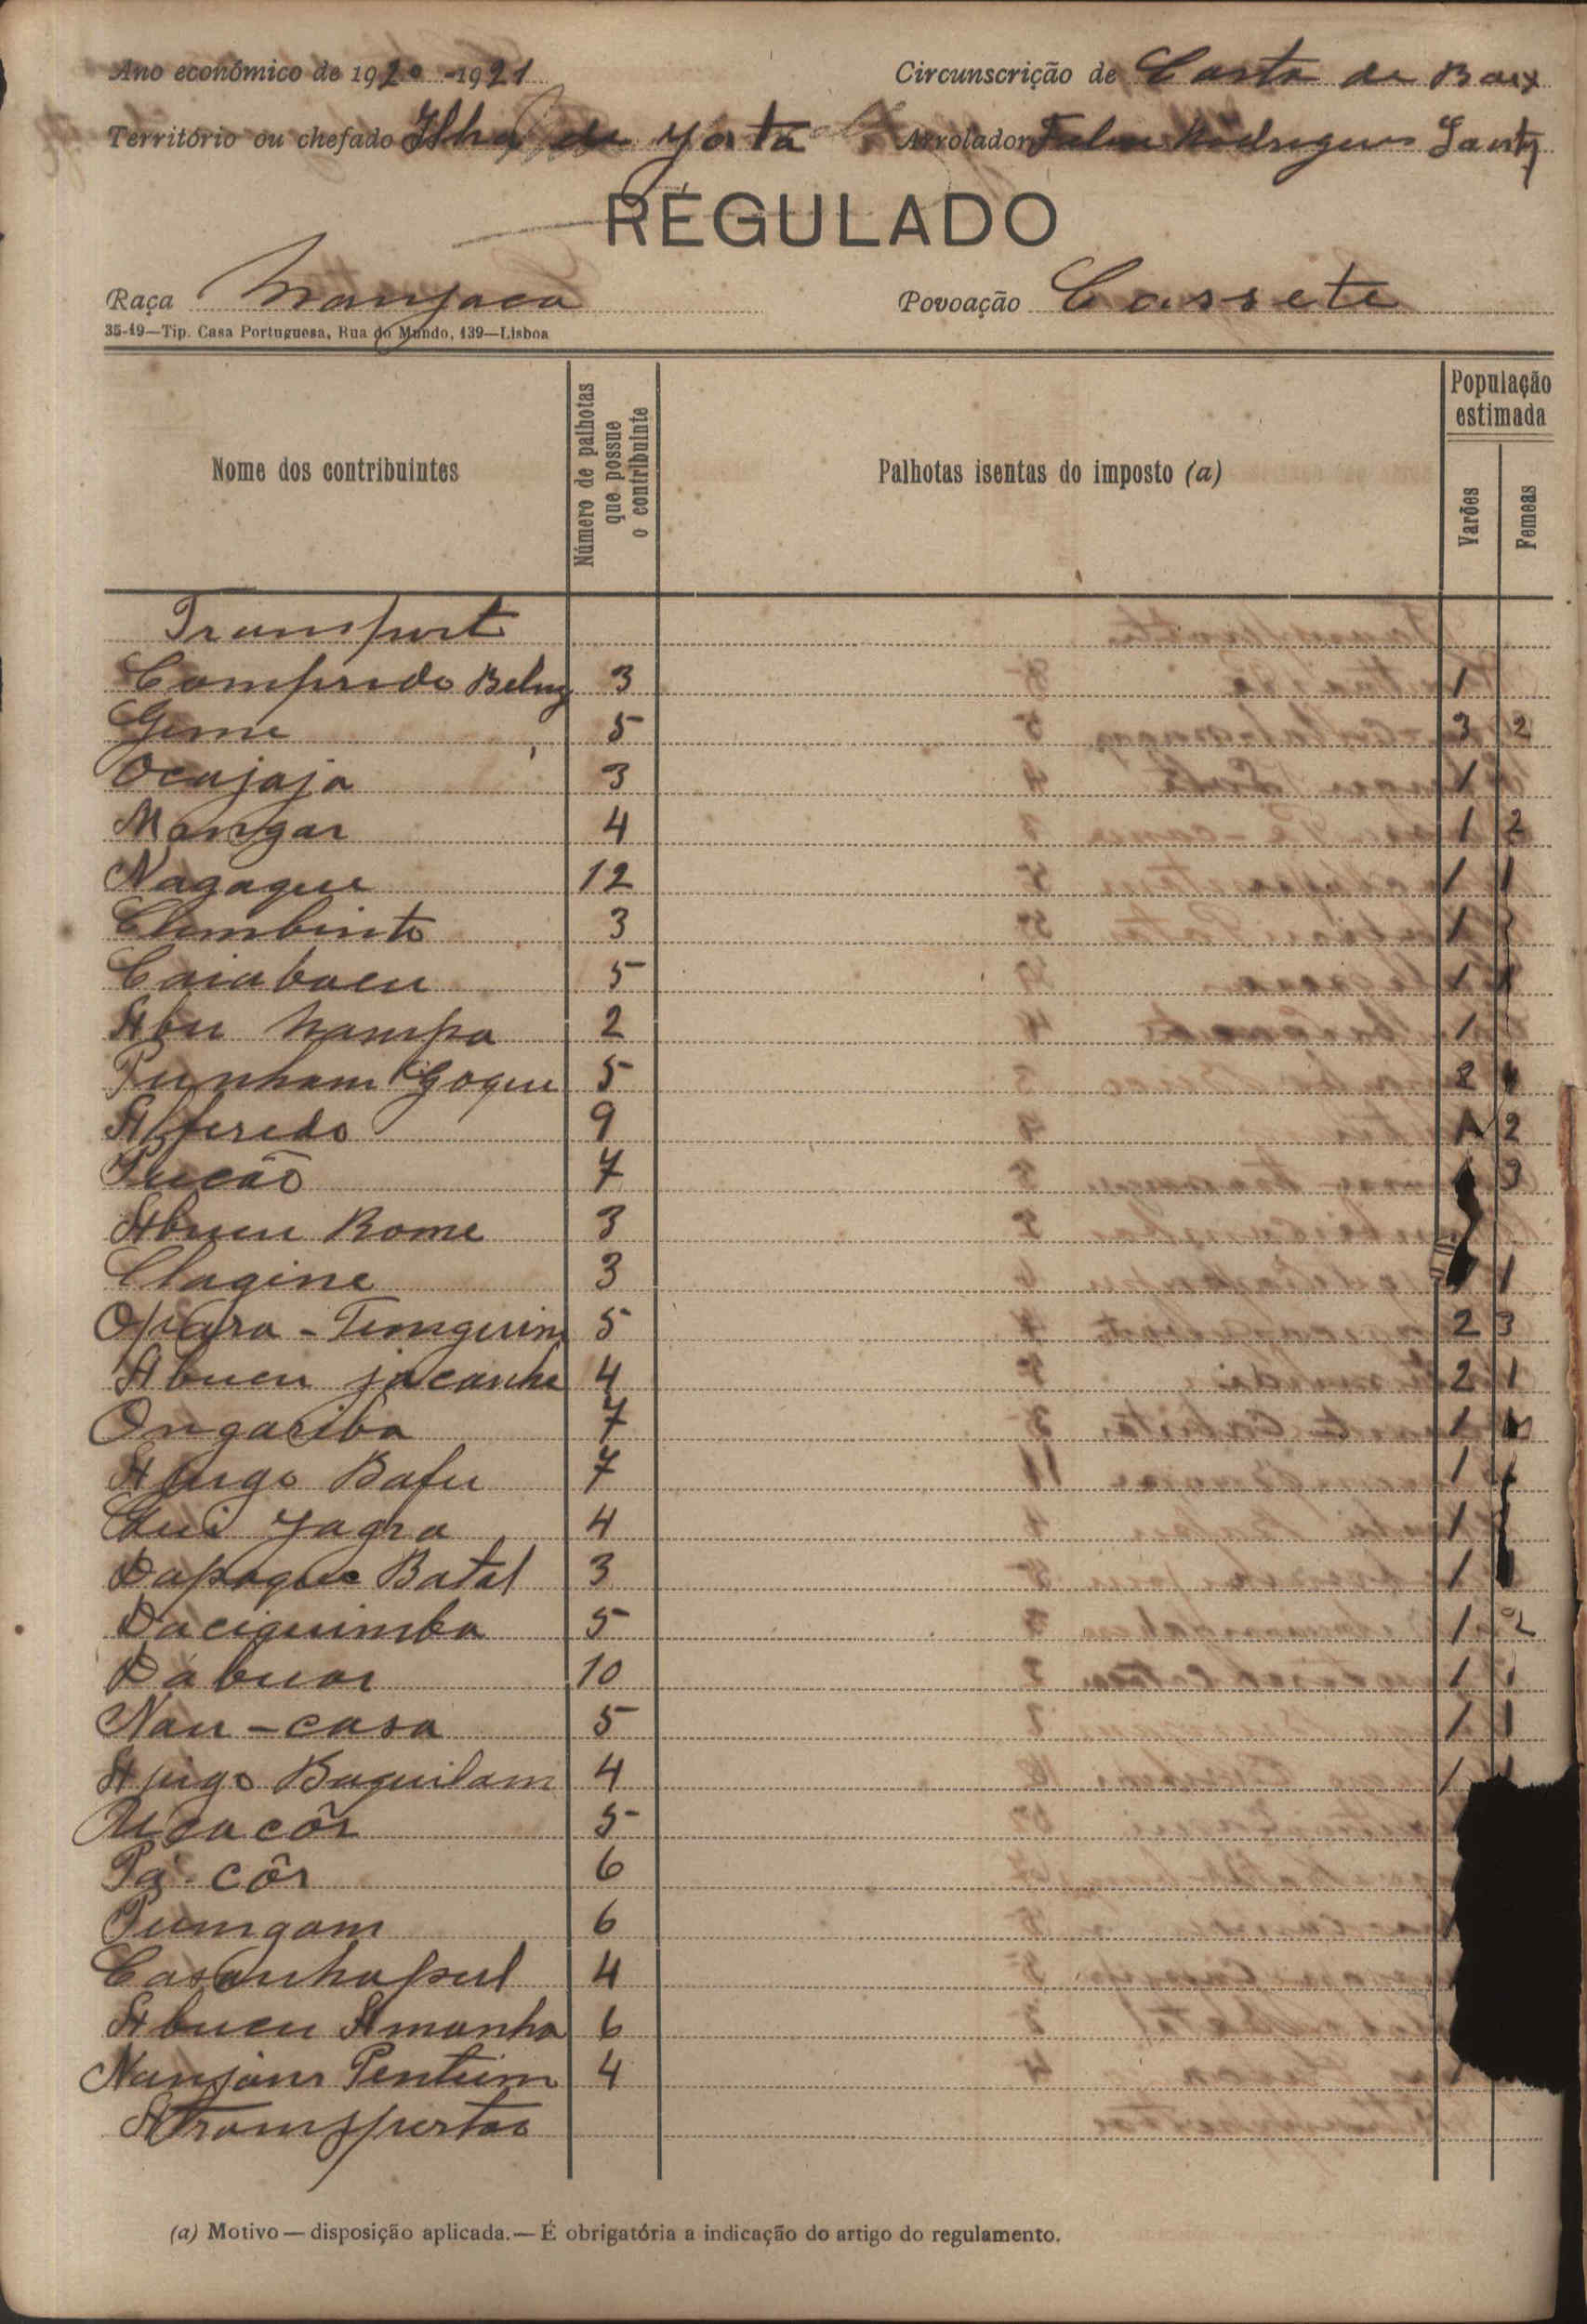 Ano económico de 1920-1921 Circunscrição de Costa de Baix
Território ou chefado Ilha de Yata Arrolador Rodrigues Santz
RÉGULADO
Raça Manjaca Povoação Cassete
35-19—Tip. Casa Portuguesa, Rua do Mundo, 139—Lisboa
Nome dos contribuintes Número de palhotas que possue o contribuinte Palhotas isentas do imposto (a) População estimada Varões Femeas
Transport
Comprido Belug 3 1
Gime 5 3 2
Ocajaja 3 1
Mangar 4 1 2
Nagague 12 1 1
Clumbinto 3 1
Caiabacu 5 1 1
Abu Nampa 2 1
Punham Gogue 5 2
Alferedo 9 2
Pucão 7 3
Abucu Rome 3
Clagine 3 1
Opara-Tumguim 5 2 3
Abucu jacanha 4 2 1
Ongariba 7 1
Apigo Bafu 7 1
Yagra 4 1
Dapaque Batal 3 1
Daciquimba 5 1 2
Dabuar 10 1 1
Nau-casa 5 1 1
Apigo Baquilam 4 1
Ucacôr 5
Pá-côr 6
Pumgam 6
Casanhapul 4
Abucu Amanha 6
Nanians Pentium 4
Atransportar
(a) Motivo—disposição aplicada.—É obrigatória a indicação do artigo do regulamento.